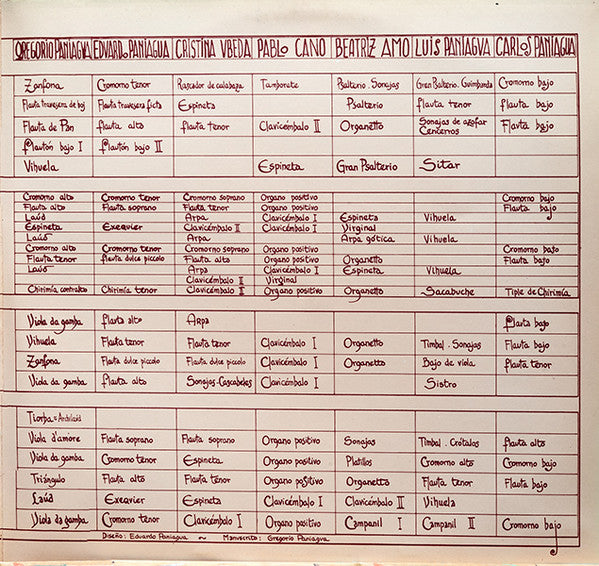 GREGORIO PANIAGVA EDVARDO PANIAGUA CRISTINA VBEDA PABLO CANO BEATRIZ AMO LUIS PANIAGVA CARLOS PANIAGUA
Zanfona Cromorno tenor Rascador de calabaza Tamborete Psalterio. Sonajas Gran Psalterio. Guimbarda Cromorno bajo
Flauta travesera de boj Flauta travesera ficta Espineta Psalterio flauta tenor flauta bajo
Flauta de Pan flauta alto flauta tenor Clavicémbalo II Organetto Sonajas de azófar Cencerros Flauta bajo
Flautón bajo I Flautón bajo II
Vihuela Espineta Gran Psalterio Sitar
Cromorno alto Cromorno tenor Cromorno soprano Organo positivo Cromorno bajo
Flauta alto Flauta soprano Flauta tenor Organo positivo Flauta bajo
Laúd Arpa Clavicémbalo I Espineta Vihuela
Espineta Exequier Clavicémbalo II Clavicémbalo I Virginal
Laúd Arpa Arpa gótica Vihuela
Cromorno alto Cromorno tenor Cromorno soprano Organo positivo Cromorno bajo
Flauta tenor flauta dulce piccolo Flauta alto Organo positivo Organetto Flauta bajo
Laúd Arpa Clavicémbalo I Espineta Vihuela
Clavicémbalo II Virginal
Chirimía contralto Chirimía tenor Clavicémbalo I Organo positivo Organetto Sacabuche Tiple de Chirimía
Viola da gamba flauta alto Arpa flauta bajo
Vihuela Flauta tenor Flauta tenor Clavicémbalo I Organetto Timbal . Sonajas Flauta bajo
Zanfona Flauta dulce piccolo Flauta dulce piccolo Clavicémbalo I Organetto Bajo de viola flauta tenor
Viola da gamba flauta alto Sonajas-Cascabeles Clavicémbalo I Sistro
Tiorba = Archilaúd
Viola d'amore Flauta soprano Flauta soprano Organo positivo Sonajas Timbal . Crótalos flauta alto
Viola da gamba Cromorno tenor Espineta Organo positivo Platillos Cromorno alto Cromorno bajo
Triángulo Flauta alto Flauta tenor Organo positivo Organetto Flauta tenor Flauta bajo
Laúd Exequier Espineta Clavicémbalo I Clavicémbalo II Vihuela
Viola da gamba Cromorno tenor Clavicémbalo I Organo positivo Campanil I Campanil II Cromorno bajo
Diseño: Eduardo Paniagua ~ Manuscrito: Gregorio Paniagva